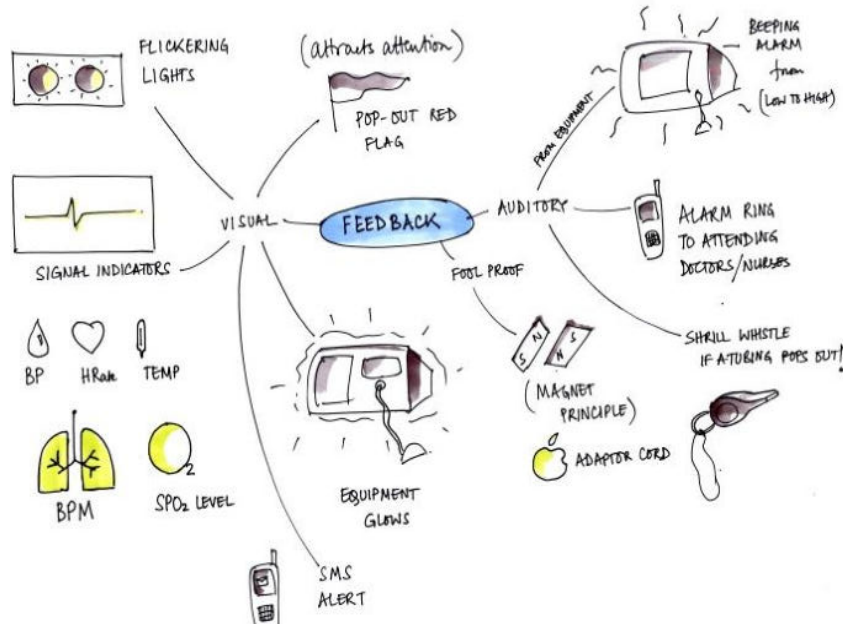 FLICKERING
LIGHTS
(attracts attention)
POP-OUT RED
FLAG
BEEPING
ALARM
from
(LOW TO HIGH)
FROM EQUIPMENT
VISUAL
FEEDBACK
AUDITORY
ALARM RING
TO ATTENDING
DOCTORS/NURSES
SIGNAL INDICATORS
FOOL PROOF
BP
HRate
TEMP
S N
N S
(MAGNET
PRINCIPLE)
SHRILL WHISTLE
IF A TUBING POPS OUT!
ADAPTOR CORD
BPM
2
SPO2 LEVEL
EQUIPMENT
GLOWS
SMS
ALERT